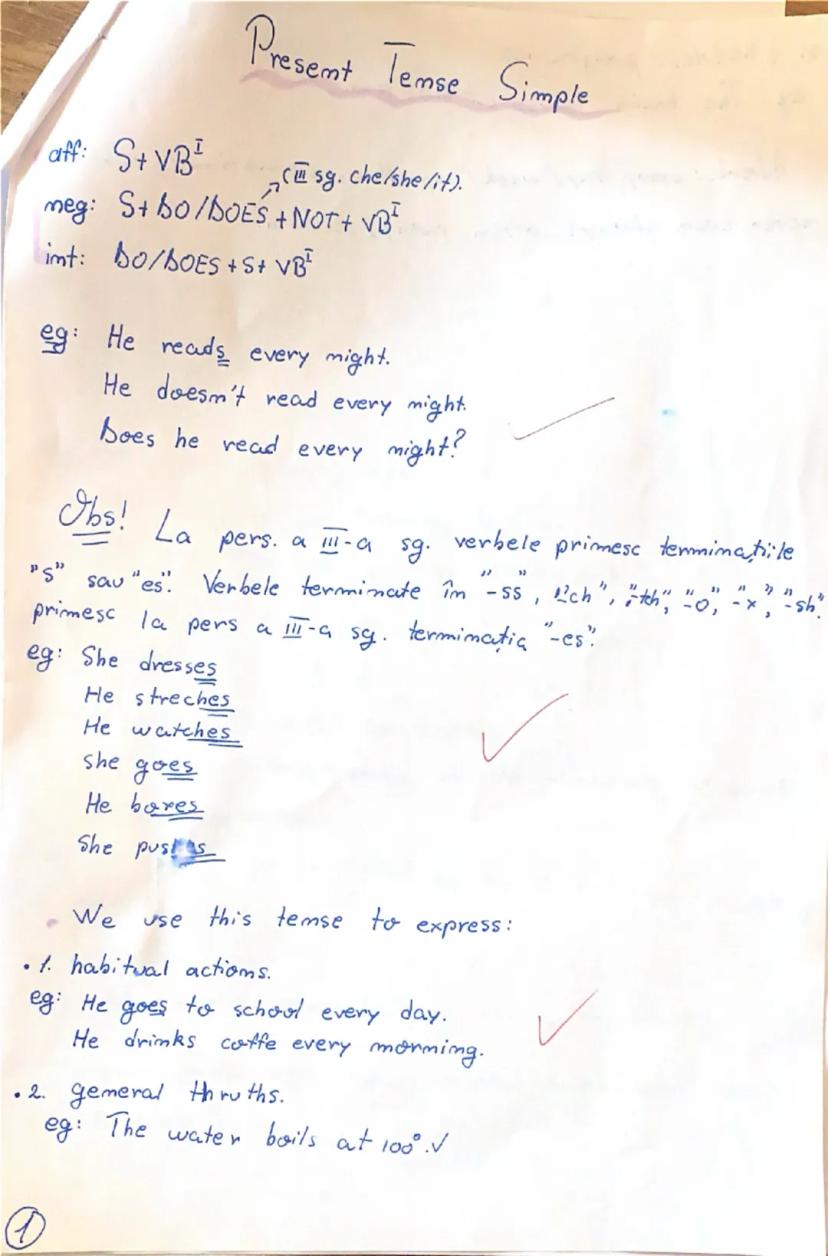 Present Tense Simple
aff: S+VB^I
(III sg. che/she/it).
neg: S+DO/DOES+NOT+VB^I
int: DO/DOES+S+VB^I
eg: He reads every night.
He doesn't read every night.
Does he read every night?
Obs! La pers. a III-a sg. verbele primesc terminațiile
"s" sau "es". Verbele terminate în "-ss", "-ch", "-tch", "-o", "-x", "-sh"
primesc la pers a III-a sg. terminația "-es".
eg: She dresses
He streches
He watches
She goes
He boxes
She
We use this tense to express:
• 1. habitual actions.
eg: He goes to school every day.
He drinks coffe every morning.
• 2. general thruths.
eg: The water boils at 100°.
1